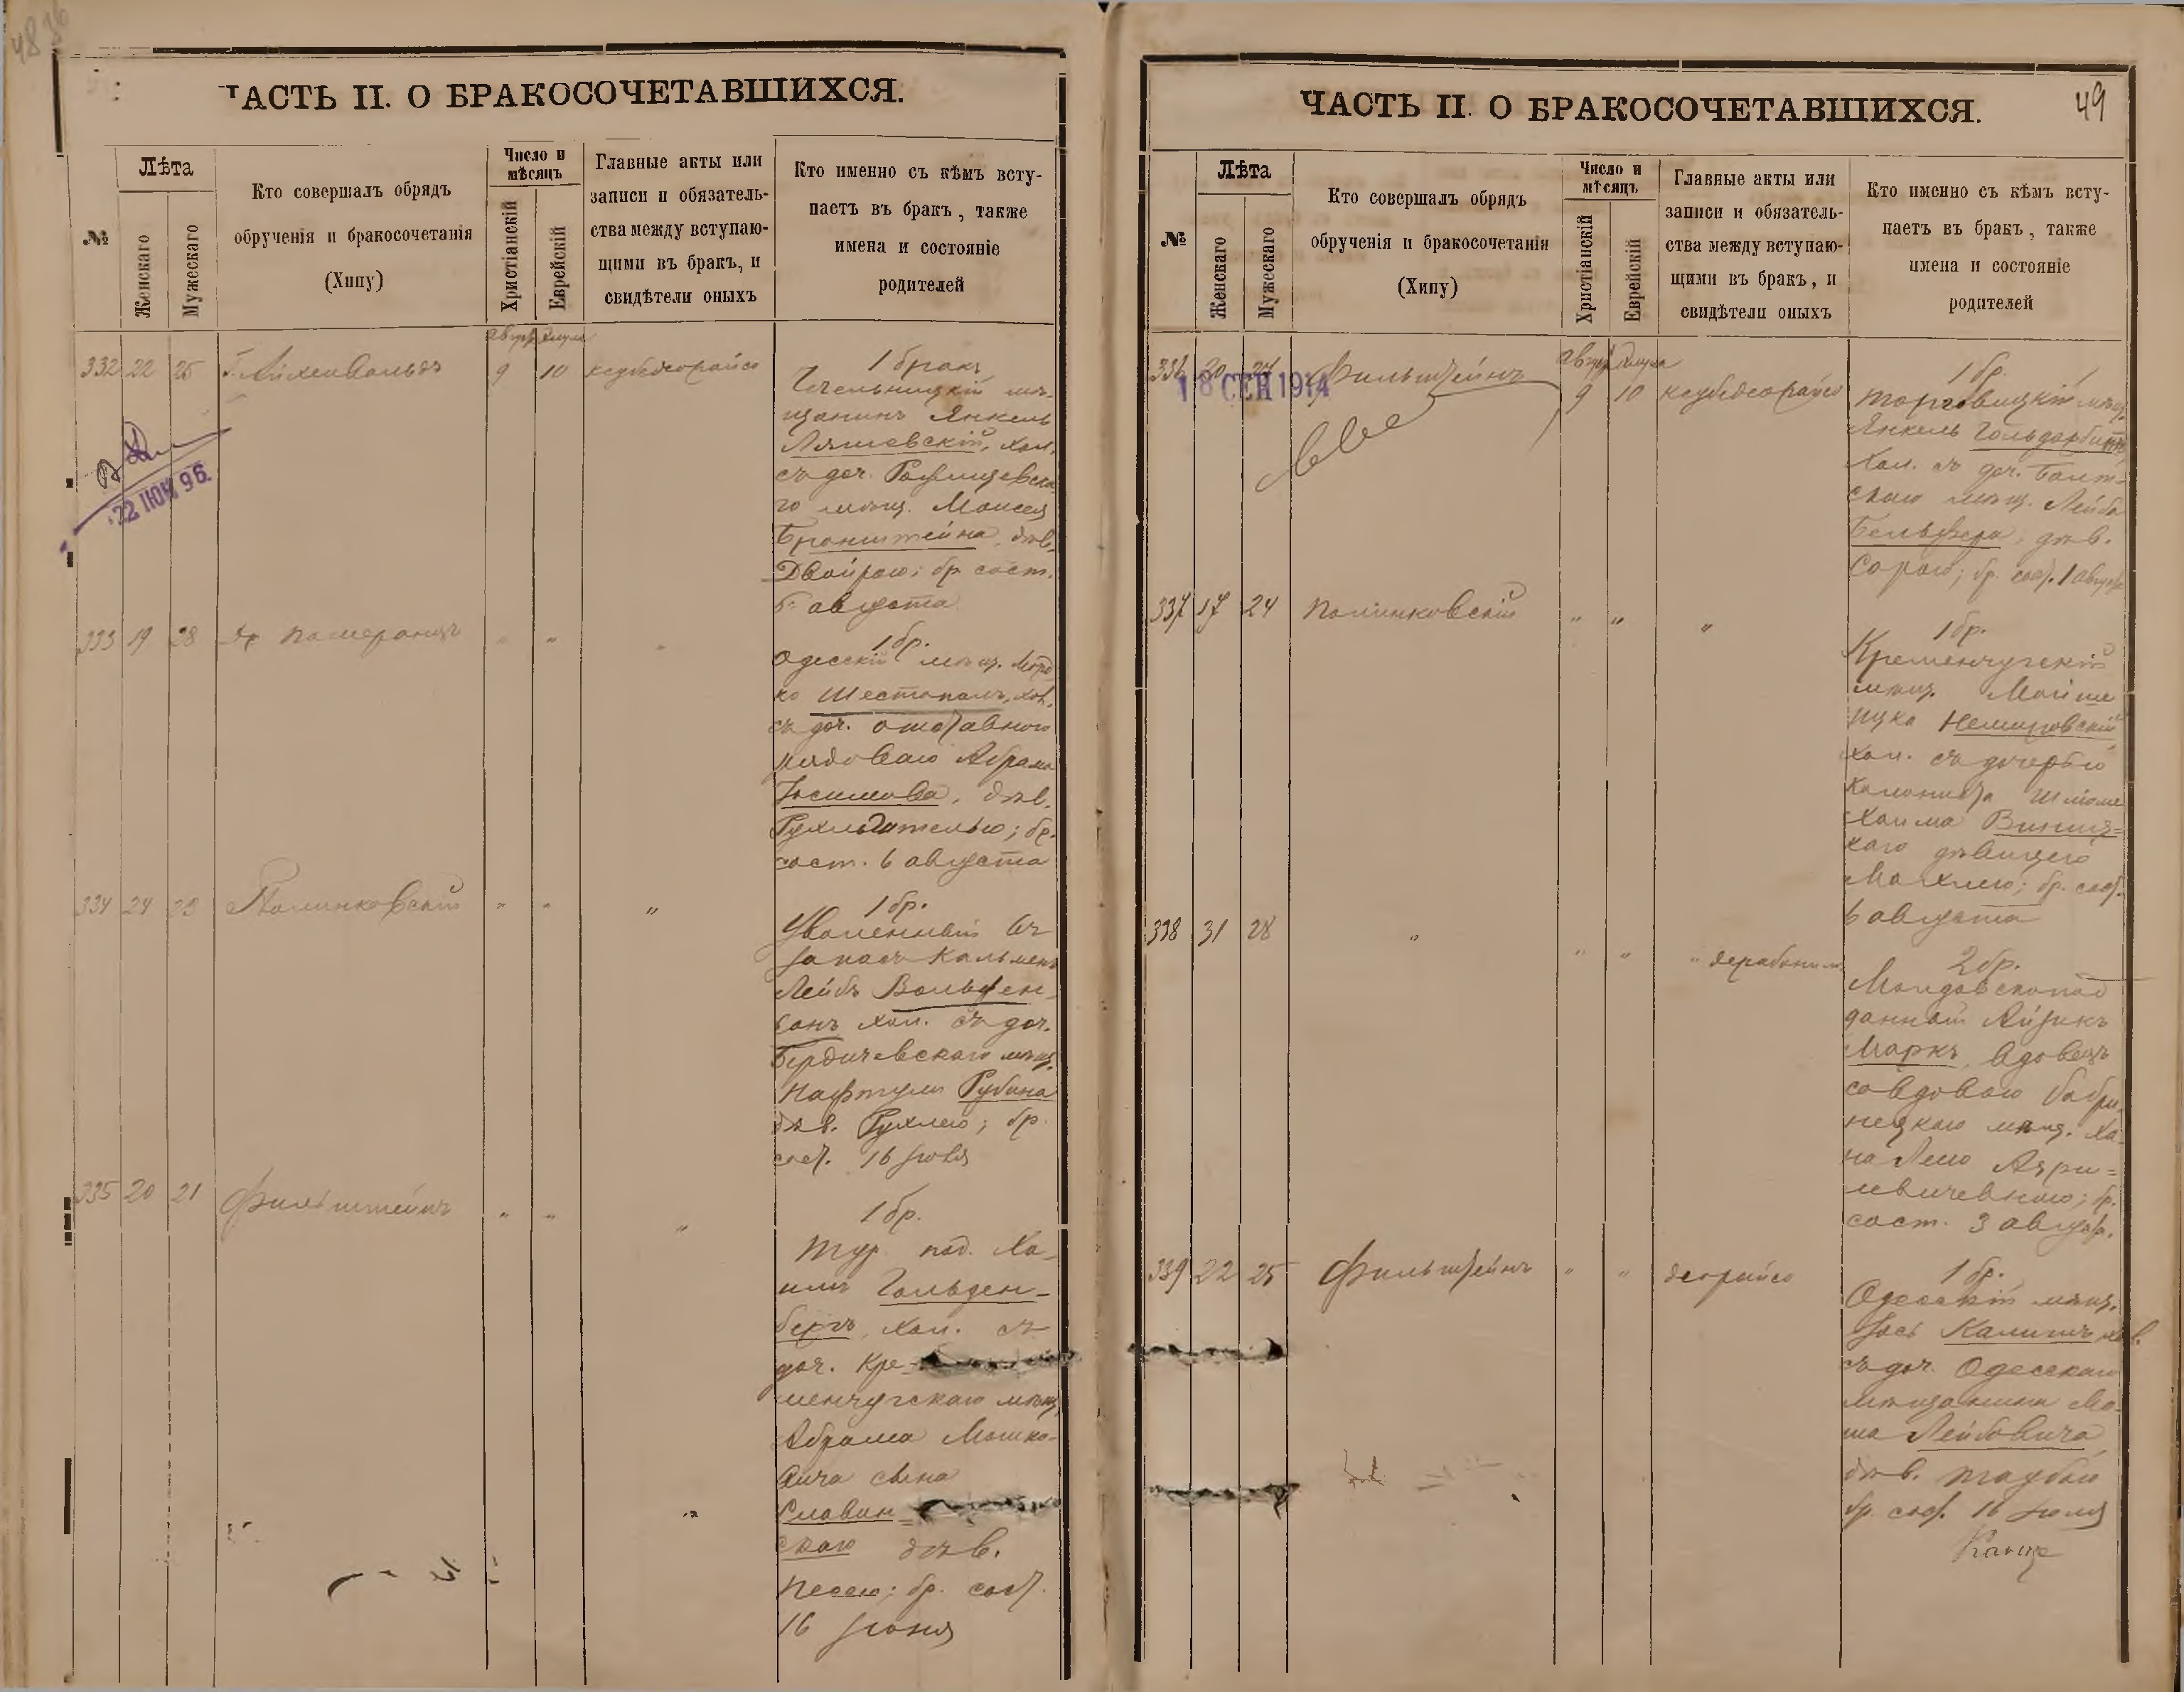 ЧАСТЬ II. О БРАКОСОЧЕТАВШИХСЯ.
№
Лѣта
Женскаго
Мужескаго
Кто совершалъ обрядъ
обрученія и бракосочетанія
(Хипу)
Число и
мѣсяцъ
Христіанскій
Еврейскій
Главные акты или
записи и обязатель-
ства между вступаю-
щими въ бракъ, и
свидѣтели оныхъ
Кто именно съ кѣмъ всту-
паетъ въ бракъ, также
имена и состояніе
родителей
332 22 25 9 10
1 бракъ
мѣ-
щанинъ Янкель
Ляшевскій, хол.
съ доч.
го мѣщ. Моисея
Бронштейна, дѣв.
Двойрою; бр. сост.
августа
22 ІЮН 96.
333 19 28 Померанцъ " " "
1 бр.
Одесскій мѣщ. Морд-
ко Шестопалъ, хол.
съ доч. отставного
рядоваго Абрама
дѣв.
бр.
сост. 6 августа
334 24 23 Полинковскій " " "
1 бр.
Уволенный въ
запасъ Кальменъ
Лейбъ Вольфен-
зонъ хол. съ доч.
Бердичевскаго мѣщ.
Нафтули Рубина
дѣв. Рухлею; бр.
сост. 16
335 20 21 Фильштейнъ " " "
1 бр.
Тур. под. Ха-
имъ Гольден-
бергъ, хол. съ
доч. Кре-
менчугскаго мѣщ.
Абрама Мошко-
вича сына
Славин-
скаго дѣв.
Песею; бр. сост.
16 іюня
ЧАСТЬ II. О БРАКОСОЧЕТАВШИХСЯ.
49
№
Лѣта
Женскаго
Мужескаго
Кто совершалъ обрядъ
обрученія и бракосочетанія
(Хипу)
Число и
мѣсяцъ
Христіанскій
Еврейскій
Главные акты или
записи и обязатель-
ства между вступаю-
щими въ бракъ, и
свидѣтели оныхъ
Кто именно съ кѣмъ всту-
паетъ въ бракъ, также
имена и состояніе
родителей
336 20 Фильштейнъ 9 10
18 СЕН 1914
1 бр.
Торговицкій мѣщ.
Янкель
хол. съ доч. Балт-
скаго мѣщ. Лейба
дѣв.
Сорою; бр. сост. 1 августа
337 17 24 Полинковскій " " "
1 бр.
Кременчугскій
мѣщ. Мойше
Ицка Немировскій
хол. съ дочерью
колониста Шломе
Хаима Виниц-
каго дѣвицею
Махлею; бр. сост.
6 августа
338 31 28 " " " "
2 бр.
Молдавскопод-
данный Айзикъ
Маркъ, вдовецъ
со вдовою Бобри-
нецкаго мѣщ. Ха-
на Леею
бр.
сост. 3 август.
339 22 25 Фильштейнъ " " деорайсо
1 бр.
Одесскій мѣщ.
Іось хол.
съ доч. Одесскаго
мѣщанина Мо-
ша Лейбовича,
дѣв. Таубою
бр. сост. 16 іюля